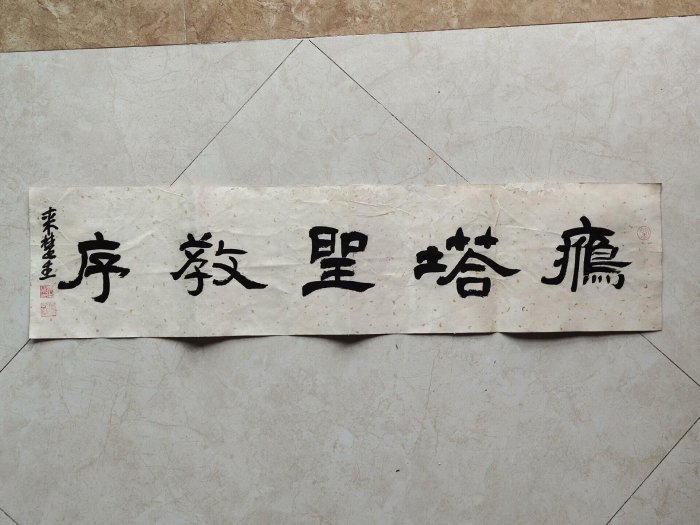 鴈塔聖教序
来楚生